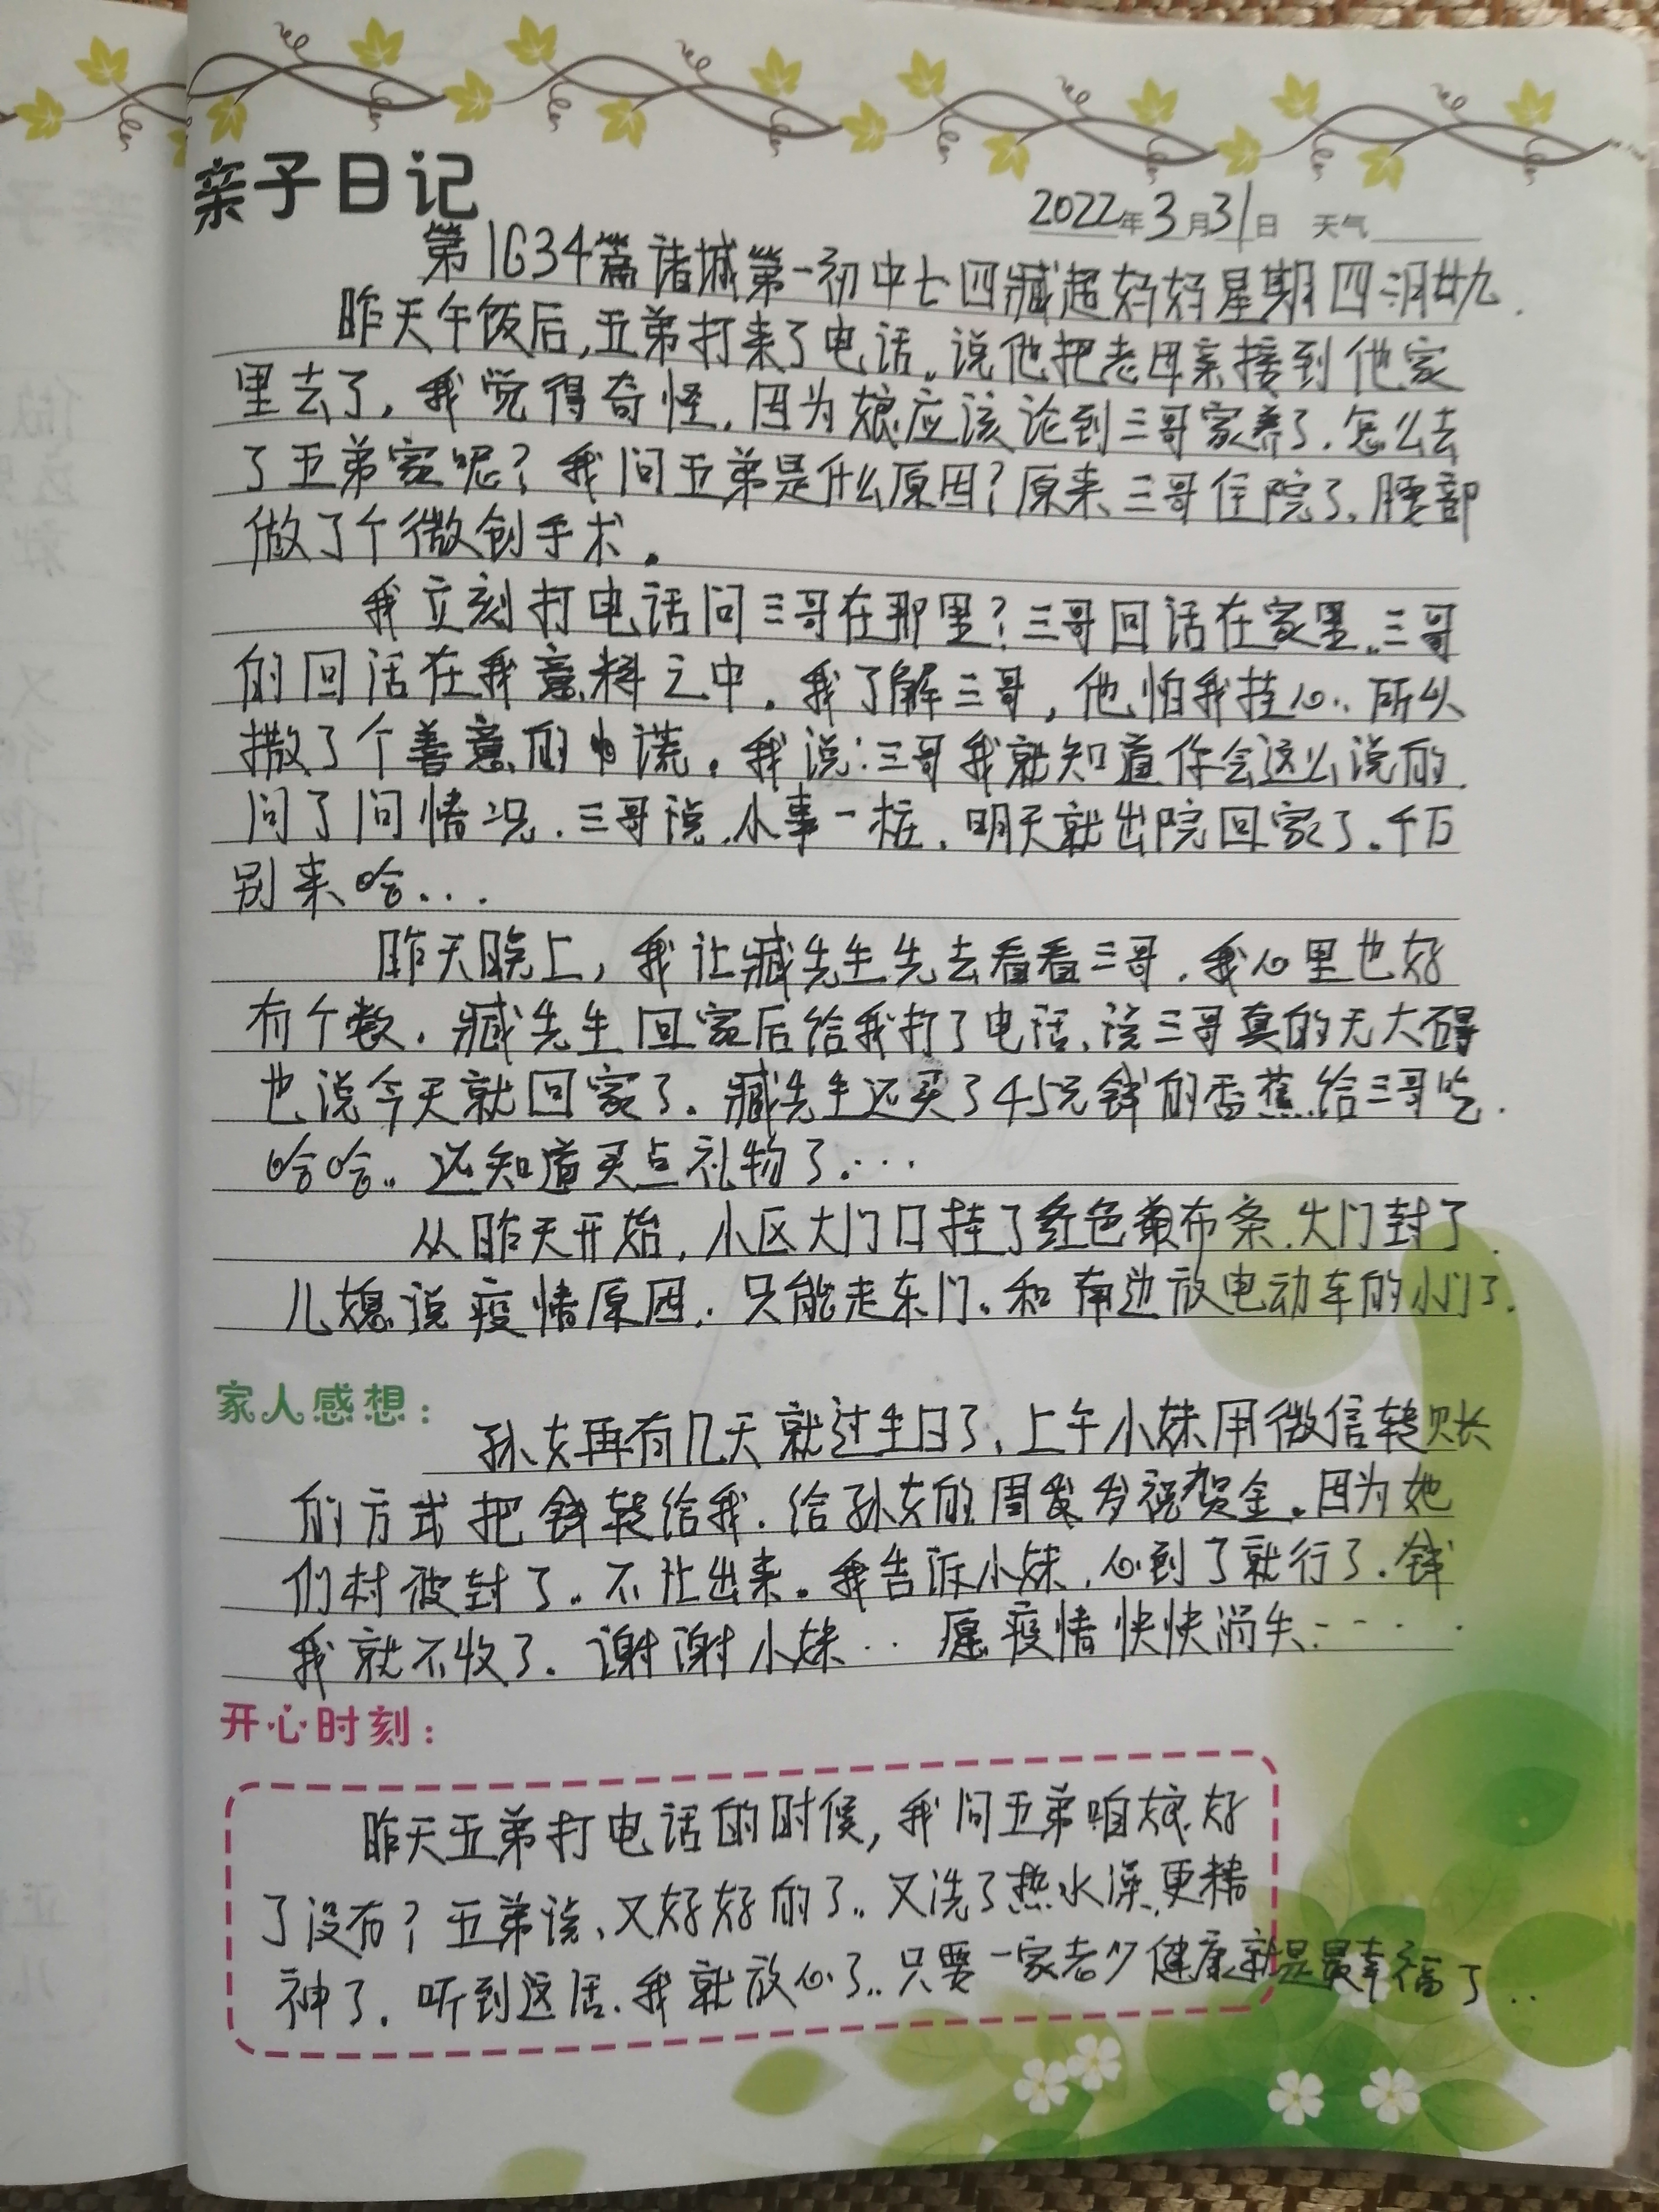 亲子日记
2022年3月31日 天气
第1634篇诸城第一初中七四臧超妈妈星期四阴廿九.
昨天午饭后,五弟打来了电话。说他把老母亲接到他家
里去了,我觉得奇怪,因为娘应该论到三哥家养了.怎么去
了五弟家呢?我问五弟是什么原因?原来三哥住院了,腰部
做了个微创手术。
我立刻打电话问三哥在那里?三哥回话在家里..三哥
的回话在我意料之中。我了解三哥,他怕我挂心..所以
撒了个善意的谎。我说:三哥我就知道你会这么说的
问了问情况.三哥说.小事一桩.明天就出院回家了.千万
别来哈...
昨天晚上,我让臧先生先去看看三哥.我心里也好
有个数.臧先生回家后给我打了电话、说三哥真的无大碍
也说今天就回家了.臧先生还买了45元钱的香蕉给三哥吃.
哈哈..还知道买点礼物了....
从昨天开始,小区大门口挂了红色布条.大门封了.
儿媳说疫情原因.只能走东门.和南边放电动车的小门了.
家人感想:
孙女再有几天就过生日了.上午小妹用微信转账
的方式把钱转给我.给孙女的周岁祝贺金。因为她
们村被封了..不让出来。我告诉小妹,心到了就行了.钱
我就不收了.谢谢小妹..愿疫情快快消失.....
开心时刻:
昨天五弟打电话的时候,我问五弟咱娘好
了没有?五弟说、又好好的了..又洗了热水澡,更精
神了.听到这话.我就放心了..只要一家老少健康就是最幸福了..